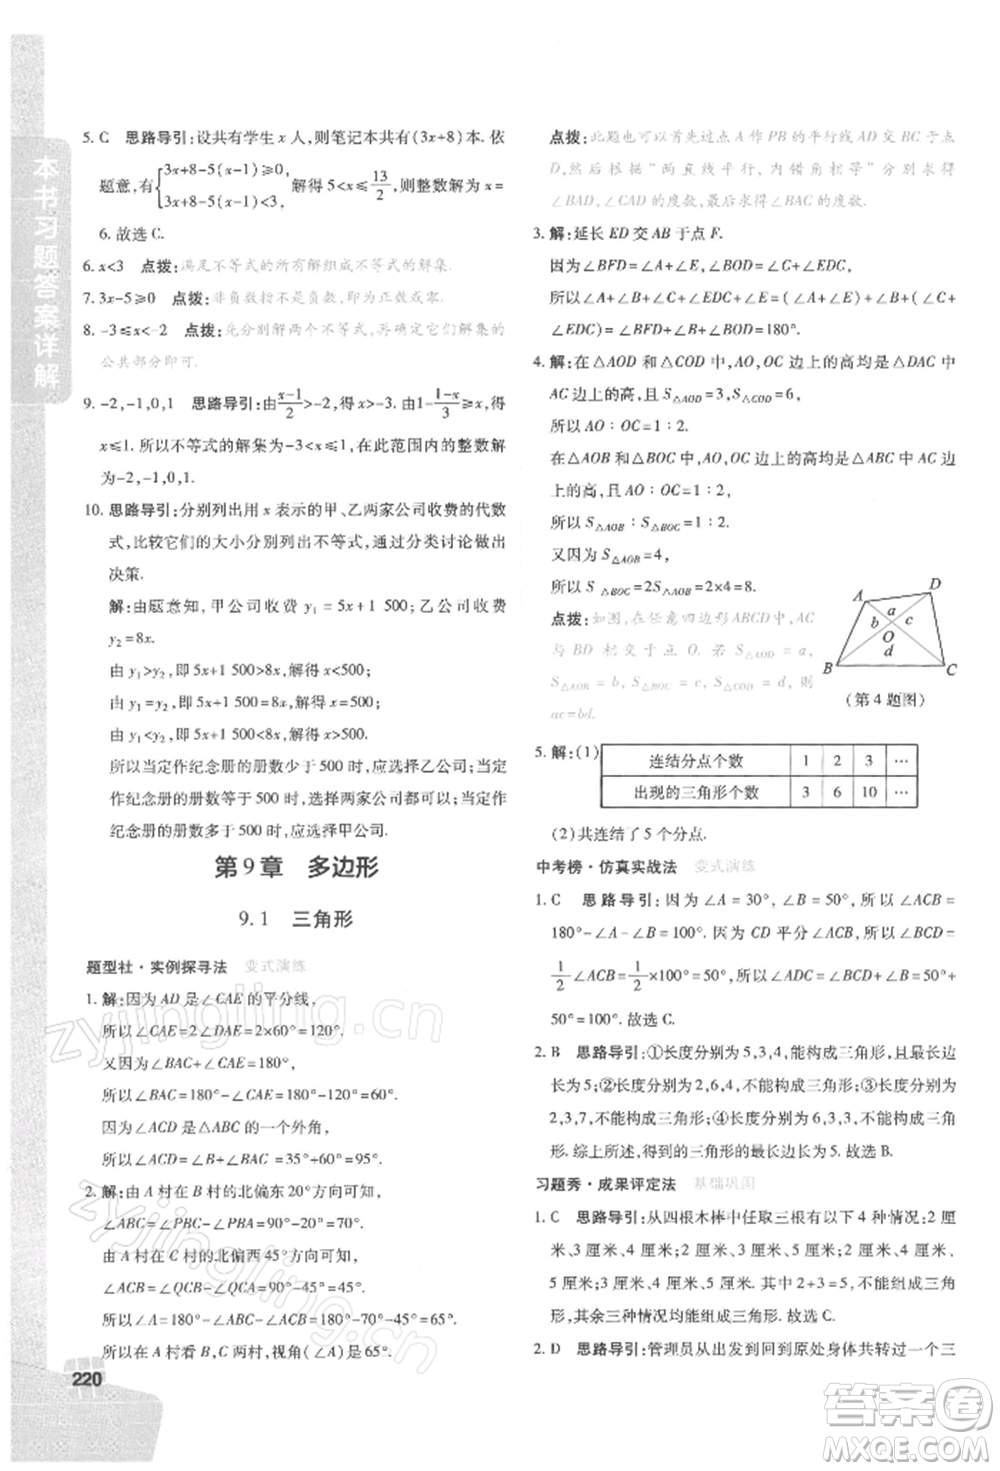 本书习题答案详解
5. C 思路导引:设共有学生 x 人,则笔记本共有(3x+8)本. 依
题意,有{3x+8-5(x-1)≥0, 3x+8-5(x-1)<3. 解得 5<x≤13/2,则整数解为 x=
6. 故选 C.
6. x<3 点拨:满足不等式的所有解组成不等式的解集.
7. 3x-5≥0 点拨:非负数指不是负数,即为正数或零.
8. -3≤x<-2 点拨:先分别解两个不等式,再确定它们解集的
公共部分即可.
9. -2,-1,0,1 思路导引:由(x-1)/2>-2,得 x>-3. 由1-(1-x)/3≥x,得
x≤1. 所以不等式的解集为-3<x≤1,在此范围内的整数解
为-2,-1,0,1.
10. 思路导引:分别列出用 x 表示的甲、乙两家公司收费的代数
式,比较它们的大小分别列出不等式,再通过分类讨论做出
决策.
解:由题意知,甲公司收费 y₁=5x+1 500;乙公司收费
y₂=8x.
由 y₁>y₂,即 5x+1 500>8x,解得 x<500;
由 y₁=y₂,即 5x+1 500=8x,解得 x=500;
由 y₁<y₂,即 5x+1 500<8x,解得 x>500.
所以当定作纪念册的册数少于 500 时,应选择乙公司;当定
作纪念册的册数等于 500 时,选择两家公司都可以;当定作
纪念册的册数大于 500 时,应选择甲公司.
第 9 章 多边形
9.1 三角形
题型社·实例探寻法 变式演练
1. 解:因为 AD 是∠CAE 的平分线,
所以∠CAE=2∠DAE=2×60°=120°.
又因为∠BAC+∠CAE=180°,
所以∠BAC=180°-∠CAE=60°.
因为∠ACD 是△ABC 的一个外角,
所以∠ACD=∠B+∠BAC=35°+60°=95°.
2. 解:由 A 村在 B 村的北偏东20°方向得,
∠ABC=∠PBC-∠PBA=90°-20°=70°.
由 A 村在 C 村的北偏西45°方向得,
∠ACB=∠QCB-∠QCA=90°-45°=45°.
所以∠BAC=180°-70°-45°=65°.
所以在 A 村看 B、C 两村,视角(∠BAC)为 65°.
220
点拨:此题也可以首先过点 A 作 PB 的平行线 AD 交 BC 于点
D,然后根据“两直线平行,内错角相等”分别求得
∠BAD,∠CAD 的度数,最后求得∠BAC的度数.
3. 解:延长 ED 交 AB 于点 F.
因为∠BFD=∠A+∠E,∠BOD=∠C+∠EDC,
所以∠A+∠E+∠B+∠C+∠EDC=∠BFD+∠B+∠C+
∠EDC=∠BFD+∠B+∠BOD=180°.
4. 解:在△AOD 和△COD 中,AO,OC 边上的高均是△DAC 中
AC 上的高,且S△AOD=3,S△COD=6,
所以 AO∶OC=1∶2.
在△AOB 和△BOC 中,AO,OC 边上的高均是△ABC 中 AC
上的高,
所以 S△AOB∶S△BOC=1∶2.
又因为 S△AOB=4,
所以 S△BOC=2S△AOB=2×4=8.
点拨:如图,在任意四边形ABCD中,AC
与 BD 相交于点 O. 若 S△AOD=a,
S△AOB=b,S△COD=c,S△BOC=d,则
ac=bd.
A
D
a
b
c
O
d
B
C
(第 4 题图)
5. 解:(1)
连结分点个数 1 2 3 …
出现的三角形个数 3 6 10 …
(2)共连结了 5 个分点.
中考榜·仿真实战法 变式演练
1. C 思路导引:因为∠A=30°,∠B=50°,所以∠ACB=
180°-∠A-∠B=100°. 因为 CD 平分∠ACB,所以∠ACD=
1/2∠ACB=1/2×100°=50°. 所以∠ADC=180°-∠A-∠ACD
50°=100°. 故选 C.
2. B 思路导引:①长度分别为 5,3,4,能构成三角形,且最长边
长为5;②长度分别为2,6,4,不能构成三角形;③长度分别为
2,3,7,不能构成三角形;④长度分别为6,3,3,不能构成三角
形. 综上所述,得到的三角形的最长边长为 5. 故选 B.
习题秀·成果评定法 基础巩固
1. C 思路导引:从四根木棒中任取三根有以下 4 种情况:2 厘
米、3 厘米、4 厘米;2 厘米、3 厘米、5 厘米;2 厘米、4 厘米、
5厘米;3 厘米、4 厘米、5 厘米. 其中 2+3=5,不能组成三角
形,其余三种情况均能组成三角形. 故选 C.
2. D 思路导引:管理员从出发到回到原处身体共转过一个三
zyjingling.cn
zyjingling.cn
答案圈
MXQE.COM